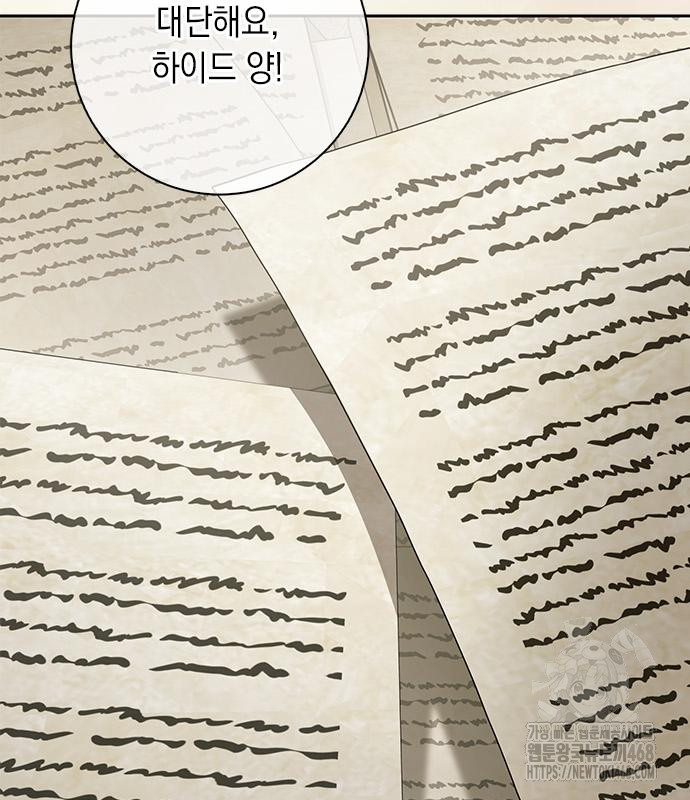 대단해요,
하이드 양!
가장 빠른 웹툰 제공사이트
웹툰왕국뉴토끼468
HTTPS://NEWTOKI468.COM